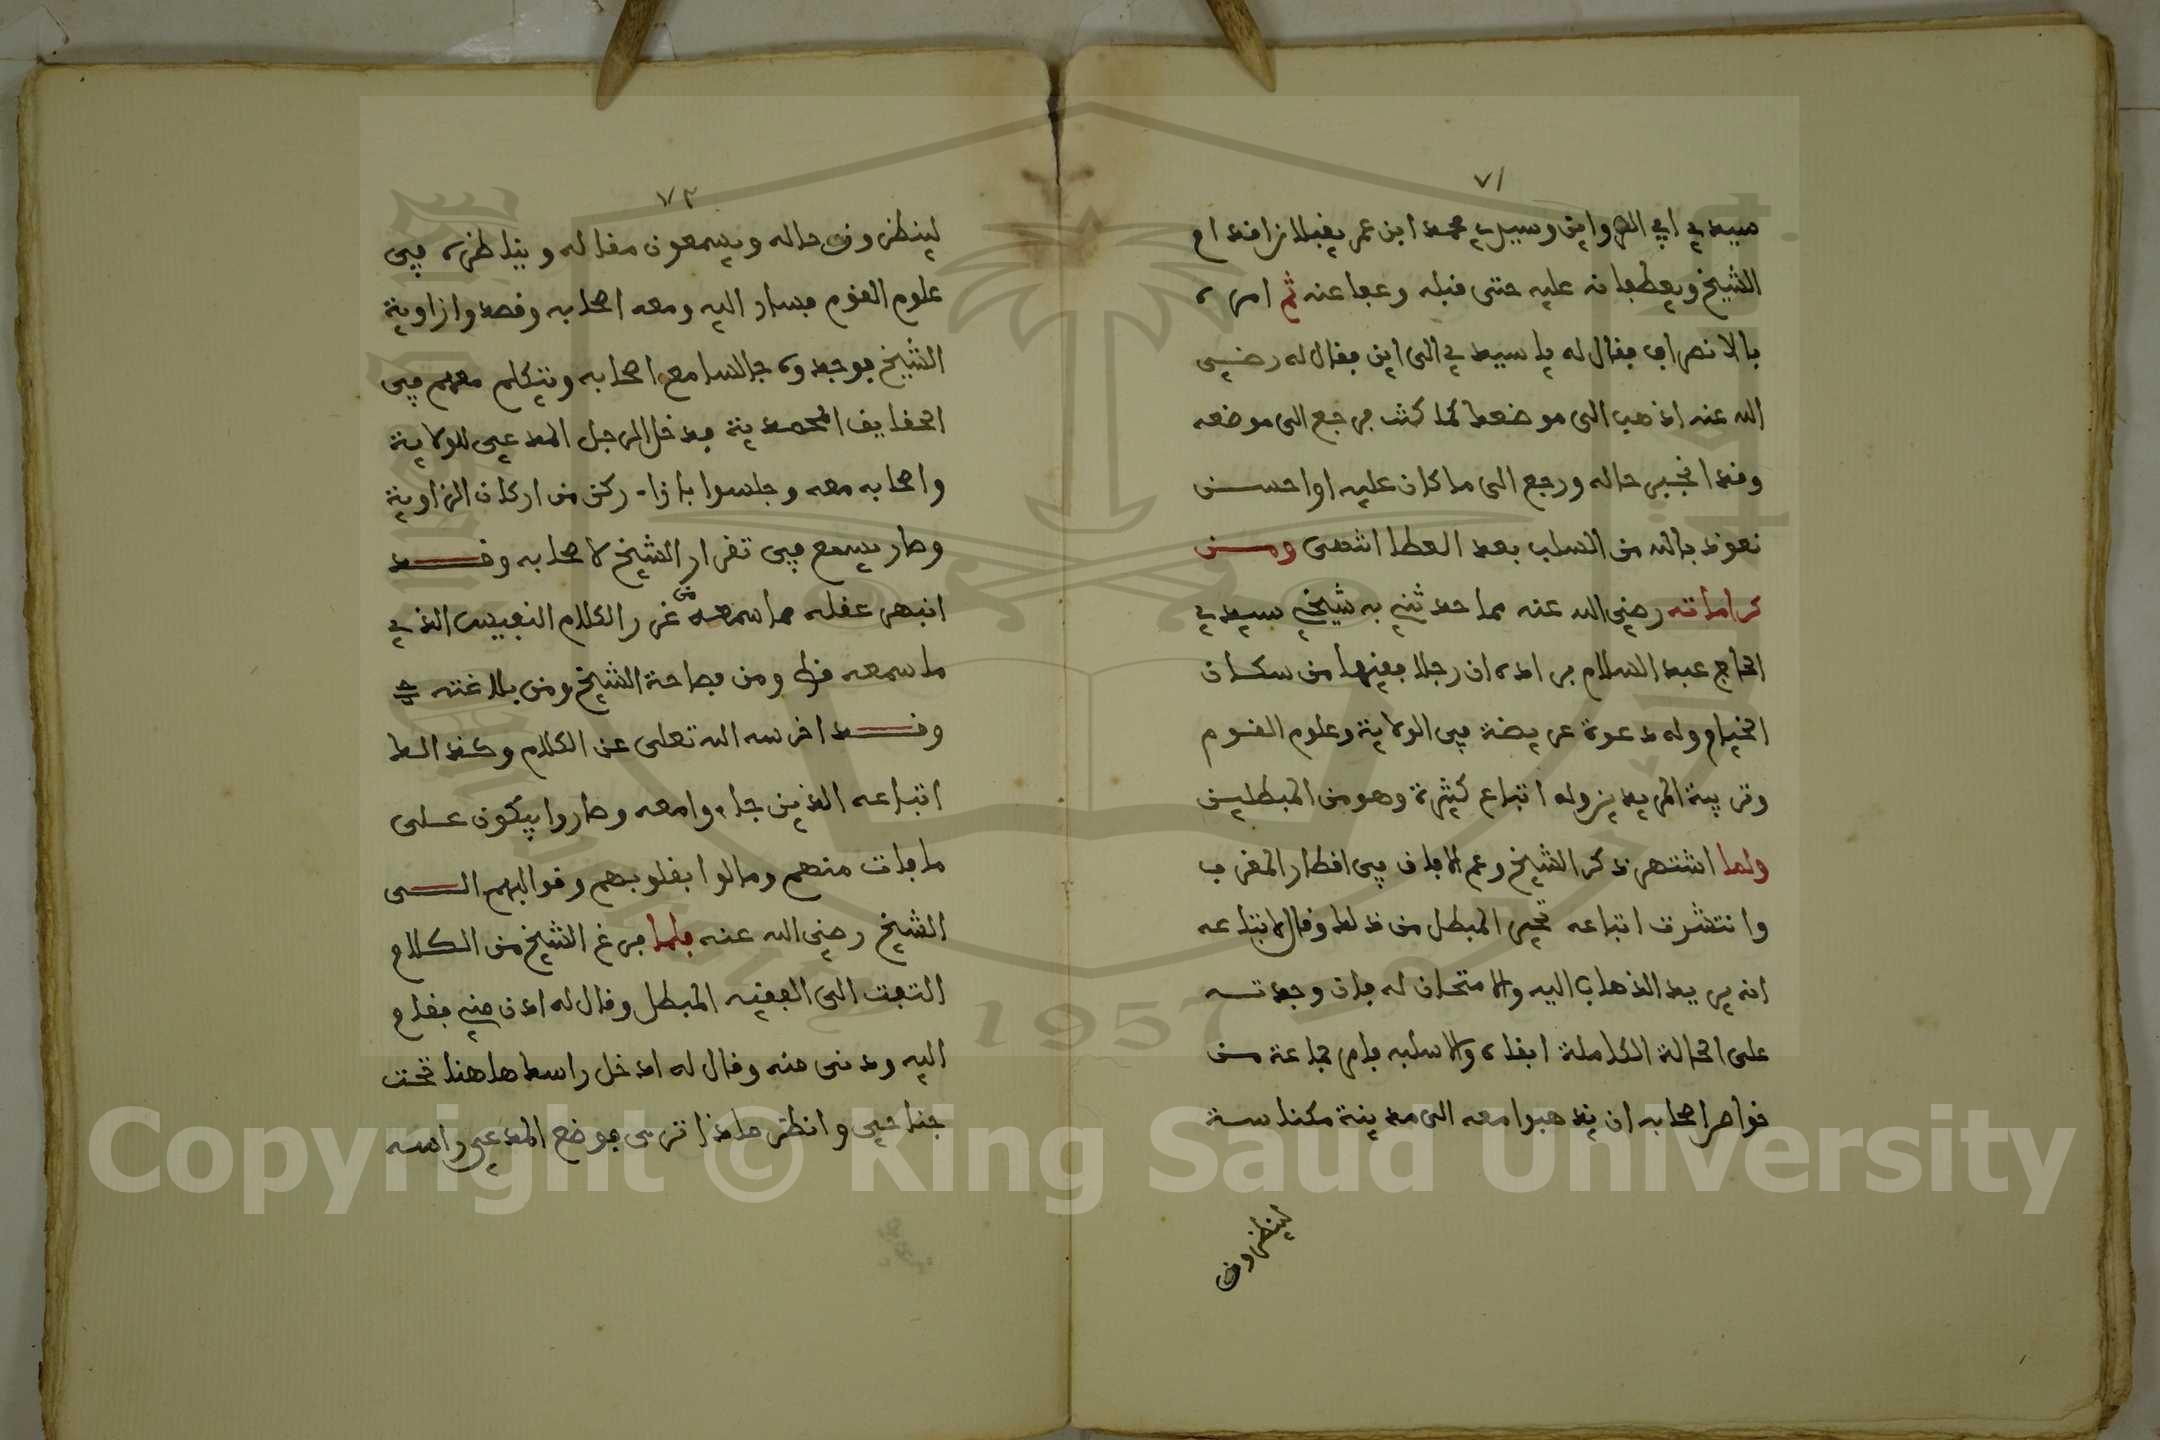 ٧١
سيدي ابي اللهواين وسيدي محمد ابن عمر يقبلان اقدام
الشيخ ويعطفانه عليه حتى قبله وعفا عنه ثم امره
بالانصراف فقال له يا سيدي الى اين فقال له رضي
الله عنه اذهب الى موضعك كما كنت فرجع الى موضعه
وقد انجبر حاله ورجع الى ما كان عليه او احسن
نعوذ بالله من السلب بعد العطا انتهى ومن
كراماته رضي الله عنه مما حدثني به شيخي سيدي
الحاج عبد السلام براده ان رجلا فقيها من سكان
الخيام وله دعوة عريضة في الولاية وعلوم القوم
وتربية المريدين وله اتباع كثيرة وهو من المبطلين
ولما اشتهر ذكر الشيخ وعم الافاق في اقطار المغرب
وانتشرت اتباعه تحير المبطل من ذلك وقال لاتباعه
انه يريد الذهاب اليه والامتحان له فان وجدته
على الحالة الكاملة ابقاه والا سلبه فامر جماعة من
خواص اصحابه ان يذهبوا معه الى مدينة مكناسة
لينظرون
٧٢
لينظرون حاله ويسمعون مقاله ويناظره في
علوم القوم فسار اليه ومعه اصحابه وقصدوا زاوية
الشيخ فوجدوه جالسا مع اصحابه وتيكلم معهم في
الحقايق المحمدية فدخل الرجل المدعي للولاية
واصحابه معه وجلسوا بازاء ركن من اركان الزاوية
وصار يسمع في تقرار الشيخ لاصحابه وقد
انبهر عقله مما سمعه من غرر الكلام النفيس الذي
ما سمعه قط ومن فصاحة الشيخ ومن بلاغته
وقد اخرسه الله تعلى عن الكلام وكذالك
اتباعه الذين جاءوا معه وصاروا يبكون على
ما فات منهم ومالوا بقلوبهم وقوالبهم الى
الشيخ رضي الله عنه فلما فرغ الشيخ من الكلام
التفت الى الفقيه المبطل وقال له ادن مني فقام
اليه ودنى منه وقال له ادخل راسك هاهنا تحت
جناحي وانظر ماذا ترى فوضع المدعي راسه
Copyright © King Saud University
1957